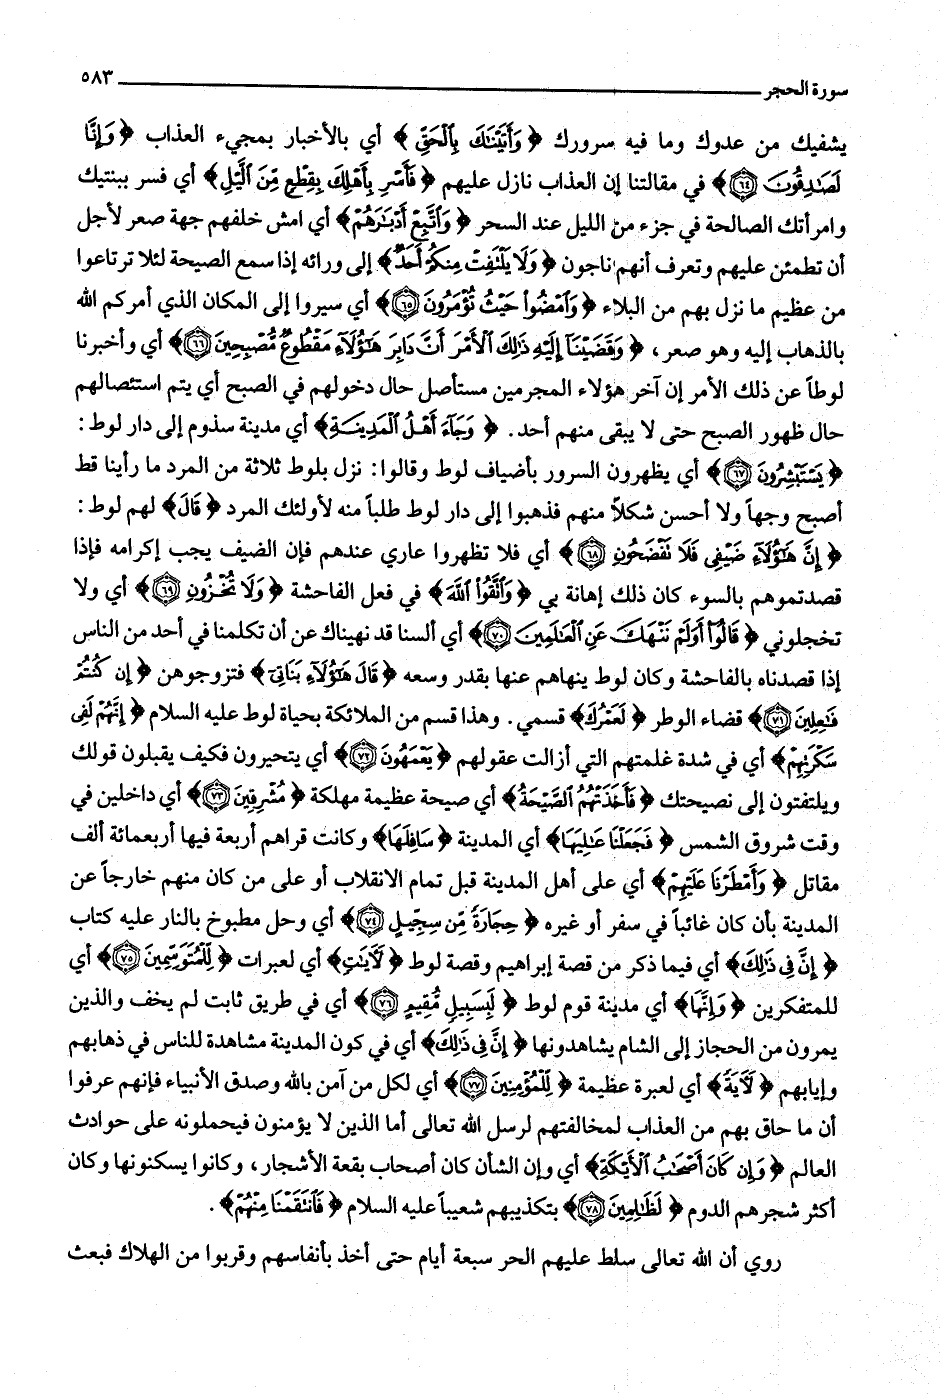 سورة الحجر ٥٨٣
يشفيك من عدوك وما فيه سرورك ﴿ وَأَتَيْنَاكَ بِالْحَقِّ ﴾ أي بالأخبار بمجيء العذاب ﴿ وَإِنَّا
لَصَادِقُونَ ٦٤ ﴾ في مقالتنا إن العذاب نازل عليهم ﴿ فَأَسْرِ بِأَهْلِكَ بِقِطْعٍ مِّنَ اللَّيْلِ ﴾ أي فسر ببنتيك
وامرأتك الصالحة في جزء من الليل عند السحر ﴿ وَاتَّبِعْ أَدْبَارَهُمْ ﴾ أي امش خلفهم جهة صعر لأجل
أن تطمئن عليهم وتعرف أنهم ناجون ﴿ وَلَا يَلْتَفِتْ مِنكُمْ أَحَدٌ ﴾ إلى ورائه إذا سمع الصيحة لئلا ترتاعوا
من عظيم ما نزل بهم من البلاء ﴿ وَامْضُوا حَيْثُ تُؤْمَرُونَ ٦٥ ﴾ أي سيروا إلى المكان الذي أمركم الله
بالذهاب إليه وهو صعر، ﴿ وَقَضَيْنَا إِلَيْهِ ذَٰلِكَ الْأَمْرَ أَنَّ دَابِرَ هَٰؤُلَاءِ مَقْطُوعٌ مُّصْبِحِينَ ٦٦ ﴾ أي وأخبرنا
لوطاً عن ذلك الأمر إن آخر هؤلاء المجرمين مستأصل حال دخولهم في الصبح أي يتم استئصالهم
حال ظهور الصبح حتى لا يبقى منهم أحد. ﴿ وَجَاءَ أَهْلُ الْمَدِينَةِ ﴾ أي مدينة سذوم إلى دار لوط :
﴿ يَسْتَبْشِرُونَ ٦٧ ﴾ أي يظهرون السرور بأضياف لوط وقالوا: نزل بلوط ثلاثة من المرد ما رأينا قط
أصبح وجهاً ولا أحسن شكلاً منهم فذهبوا إلى دار لوط طلباً منه لأولئك المرد ﴿ قَالَ ﴾ لهم لوط :
﴿ إِنَّ هَٰؤُلَاءِ ضَيْفِي فَلَا تَفْضَحُونِ ٦٨ ﴾ أي فلا تظهروا عاري عندهم فإن الضيف يجب إكرامه فإذا
قصدتموهم بالسوء كان ذلك إهانة بي ﴿ وَاتَّقُوا اللَّهَ ﴾ في فعل الفاحشة ﴿ وَلَا تُخْزُونِ ٦٩ ﴾ أي ولا
تخجلوني ﴿ قَالُوا أَوَلَمْ نَنْهَكَ عَنِ الْعَالَمِينَ ٧٠ ﴾ أي ألسنا قد نهيناك عن أن تكلمنا في أحد من الناس
إذا قصدناه بالفاحشة وكان لوط ينهاهم عنها بقدر وسعه ﴿ قَالَ هَٰؤُلَاءِ بَنَاتِي ﴾ فتزوجوهن ﴿ إِن كُنتُمْ
فَاعِلِينَ ٧١ ﴾ قضاء الوطر ﴿ لَعَمْرُكَ ﴾ قسمي. وهذا قسم من الملائكة بحياة لوط عليه السلام ﴿ إِنَّهُمْ لَفِي
سَكْرَتِهِمْ ﴾ أي في شدة غلمتهم التي أزالت عقولهم ﴿ يَعْمَهُونَ ٧٢ ﴾ أي يتحيرون فكيف يقبلون قولك
ويلتفتون إلى نصيحتك ﴿ فَأَخَذَتْهُمُ الصَّيْحَةُ ﴾ أي صيحة عظيمة مهلكة ﴿ مُشْرِقِينَ ٧٣ ﴾ أي داخلين في
وقت شروق الشمس ﴿ فَجَعَلْنَا عَالِيَهَا ﴾ أي المدينة ﴿ سَافِلَهَا ﴾ وكانت قراهم أربعة فيها أربعمائة ألف
مقاتل ﴿ وَأَمْطَرْنَا عَلَيْهِمْ ﴾ أي على أهل المدينة قبل تمام الانقلاب أو على من كان منهم خارجاً عن
المدينة بأن كان غائباً في سفر أو غيره ﴿ حِجَارَةً مِّن سِجِّيلٍ ٧٤ ﴾ أي وحل مطبوخ بالنار عليه كتاب
﴿ إِنَّ فِي ذَٰلِكَ ﴾ أي فيما ذكر من قصة إبراهيم وقصة لوط ﴿ لَآيَاتٍ ﴾ أي لعبرات ﴿ لِّلْمُتَوَسِّمِينَ ٧٥ ﴾ أي
للمتفكرين ﴿ وَإِنَّهَا ﴾ أي مدينة قوم لوط ﴿ لَبِسَبِيلٍ مُّقِيمٍ ٧٦ ﴾ أي في طريق ثابت لم يخف والذين
يمرون من الحجاز إلى الشام يشاهدونها ﴿ إِنَّ فِي ذَٰلِكَ ﴾ أي في كون المدينة مشاهدة للناس في ذهابهم
وإيابهم ﴿ لَآيَةً ﴾ أي لعبرة عظيمة ﴿ لِّلْمُؤْمِنِينَ ٧٧ ﴾ أي لكل من آمن بالله وصدق الأنبياء فإنهم عرفوا
أن ما حاق بهم من العذاب لمخالفتهم لرسل الله تعالى أما الذين لا يؤمنون فيحملونه على حوادث
العالم ﴿ وَإِن كَانَ أَصْحَابُ الْأَيْكَةِ ﴾ أي وإن الشأن كان أصحاب بقعة الأشجار، وكانوا يسكنونها وكان
أكثر شجرهم الدوم ﴿ لَظَالِمِينَ ٧٨ ﴾ بتكذيبهم شعيباً عليه السلام ﴿ فَانتَقَمْنَا مِنْهُمْ ﴾ .
روي أن الله تعالى سلط عليهم الحر سبعة أيام حتى أخذ بأنفاسهم وقربوا من الهلاك فبعث